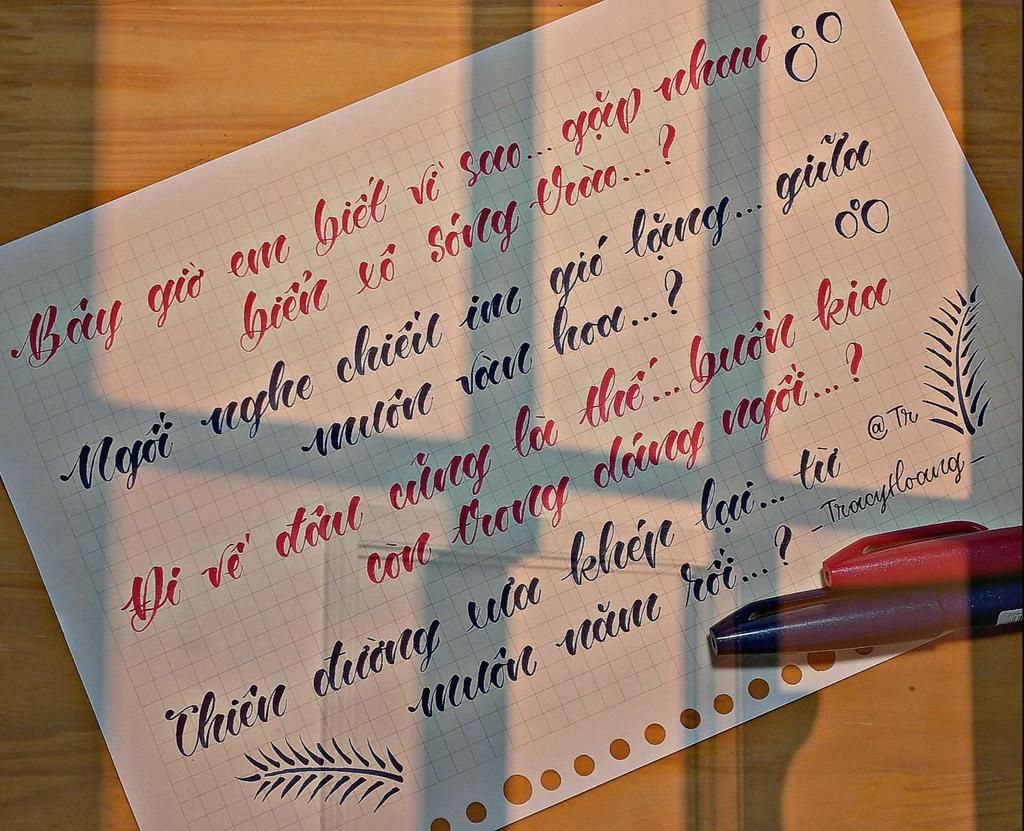 Bây giờ em biết vì sao... gặp nhau
biển xô sóng trào...?
Ngồi nghe chiều im gió lặng... giữa
muôn vàn hoa...?
Đi về đâu cũng là thế... buồn kia
con trong dáng ngồi...?
Thiên đường xưa khép lại... từ
muôn năm rồi...?
@Tr
_TracyHoang_